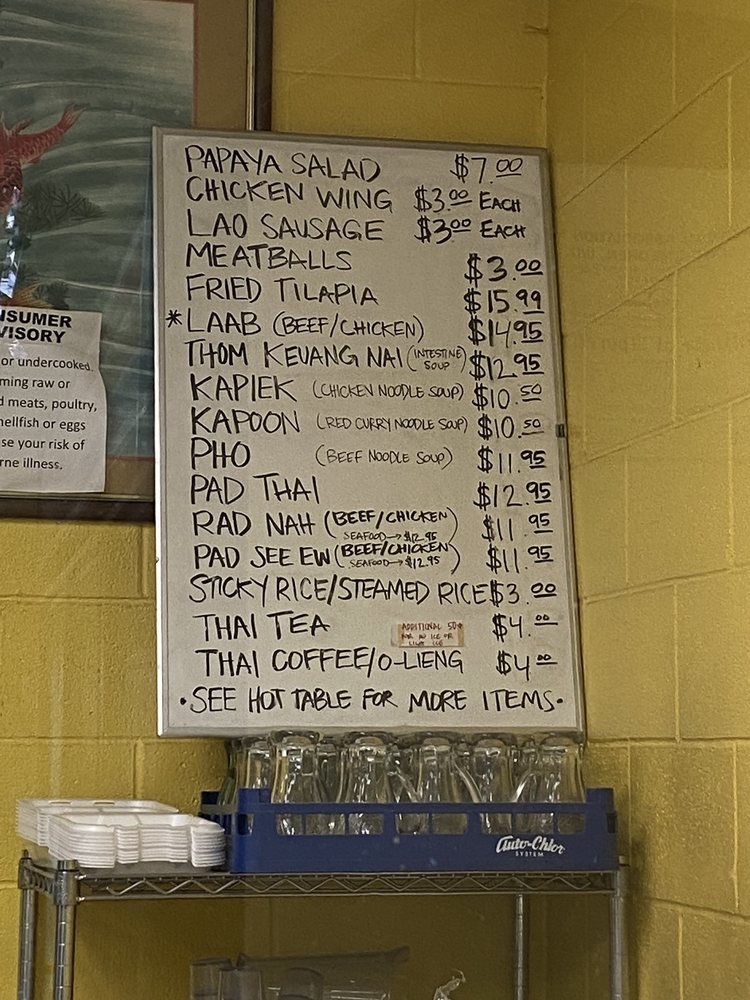 PAPAYA SALAD $7.00
CHICKEN WING $3.00 EACH
LAO SAUSAGE $3.00 EACH
MEATBALLS $3.00
FRIED TILAPIA $15.99
*LAAB (BEEF/CHICKEN) $14.95
THOM KEUANG NAI (INTESTINE SOUP) $12.95
KAPIEK (CHICKEN NOODLE SOUP) $10.50
KAPOON (RED CURRY NOODLE SOUP) $10.50
PHO (BEEF NOODLE SOUP) $11.95
PAD THAI $12.95
RAD NAH (BEEF/CHICKEN) $11.95
SEAFOOD→$12.95
PAD SEE EW (BEEF/CHICKEN) $11.95
SEAFOOD→$12.95
STICKY RICE/STEAMED RICE $3.00
THAI TEA $4.00
ADDITIONAL 50¢
FOR NO ICE OR
LIGHT ICE
THAI COFFEE/O-LIENG $4.00
•SEE HOT TABLE FOR MORE ITEMS•
NSUMER
VISORY
or undercooked.
ming raw or
d meats, poultry,
hellfish or eggs
se your risk of
rne illness.
Auto-Chlor
SYSTEM